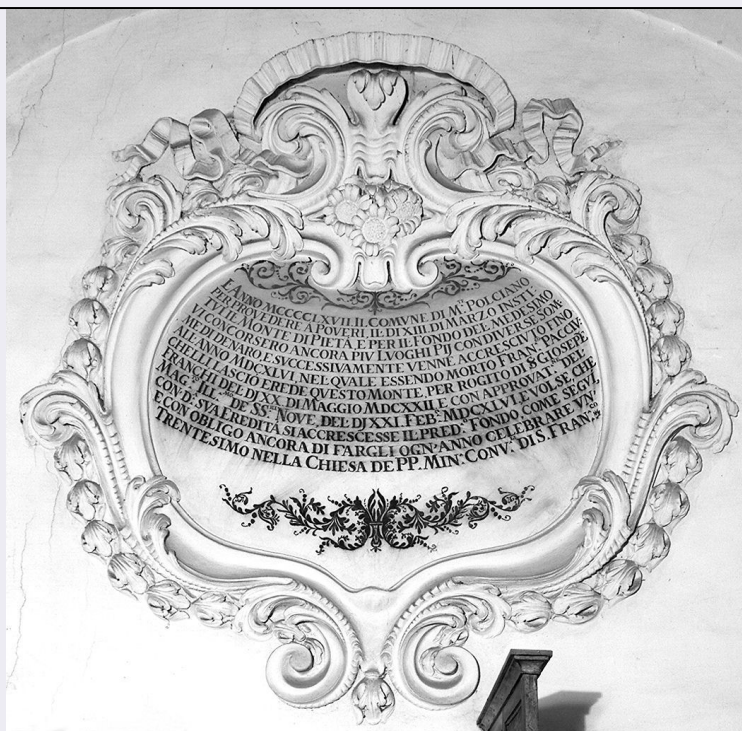 L'ANNO MCCCCLXVII. IL COMVNE DI M.ᵉ POLCIANO
PER PROVEDERE A POVERI, IL DI XIII. DI MARZO INSTI
TVI IL MONTE DI PIETÀ, E PER IL FONDO DEL MEDESIMO
VI CONCORSERO ANCORA PIV LVOGHI PIJ CON DIVERSE SOM
ME DI DENARO E SVCCESSIVAMENTE VENNE ACCRESCIVTO FINO
ALL'ANNO MDCXLVI, NEL QVALE ESSENDO MORTO FRAN.ᶜᵒ PACCIV
CHELLI LASCIÒ EREDE QVESTO MONTE, PER ROGITO DI S. GIOSEPE
FRANCHI DEL DJ XX. DI MAGGIO MDCXXII E CON APPROVAT.ᵉ DEL
MAG.ᵒ ILL.ᵐᵒ DE SS.ʳⁱ NOVE, DEL DJ XXI. FEB.ᵒ MDCXLVI, E VOLSE, CHE
CON D.ᵃ SVA EREDITÀ SI ACCRESCESSE IL PRED.ᵒ FONDO COME SEGVI,
E CON OBLIGO ANCORA DI FARGLI OGN'ANNO CELEBRARE VN
TRENTESIMO NELLA CHIESA DE PP. MIN.ⁱ CONV.ˡⁱ DI S. FRAN.ᶜᵒ